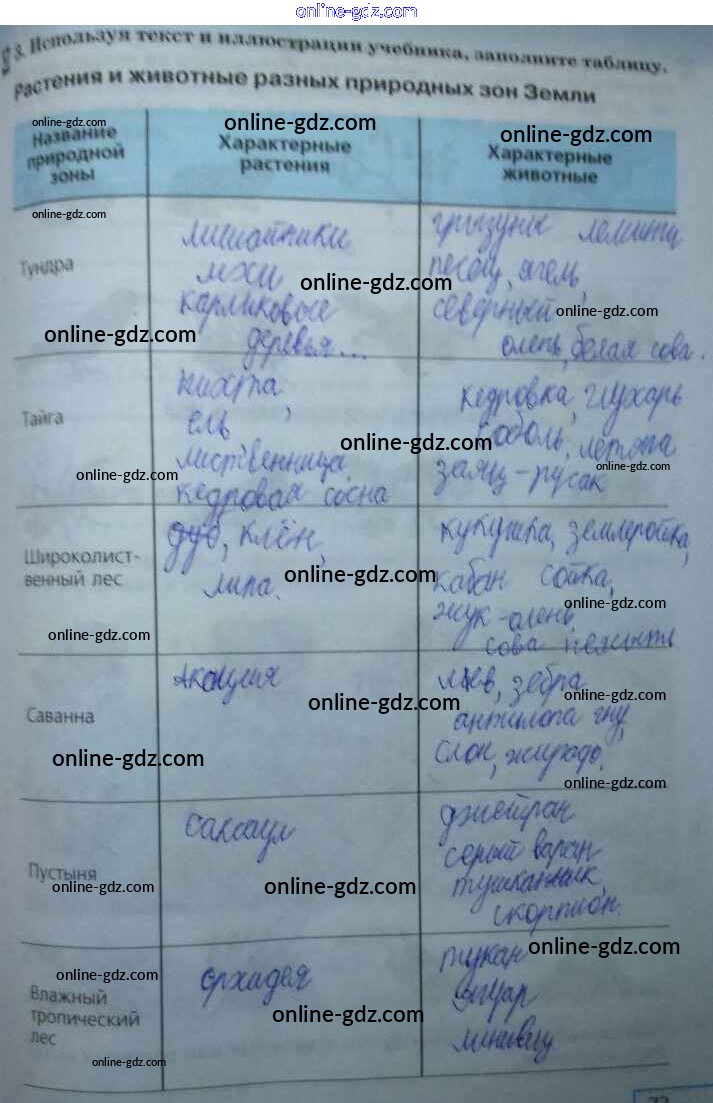 online-gdz.com
3. Используя текст и иллюстрации учебника, заполните таблицу.
Растения и животные разных природных зон Земли
online-gdz.com
online-gdz.com
online-gdz.com
Название
природной
зоны
Характерные
растения
Характерные
животные
online-gdz.com
Тундра
лишайники
мохи
карликовые
деревья...
грызуны лемминг
песец, ягель,
северный
олень, белая сова.
online-gdz.com
online-gdz.com
online-gdz.com
Тайга
пихта,
ель
лиственница
кедровая сосна
кедровка, глухарь
соболь, летяга
заяц-русак
online-gdz.com
online-gdz.com
online-gdz.com
Широколист-
венный лес
дуб, клён,
липа.
кукушка, землеройка,
кабан сойка,
жук-олень
сова неясыть
online-gdz.com
online-gdz.com
online-gdz.com
Саванна
Акация
львев, зебра
антилопа гну,
слон,
online-gdz.com
online-gdz.com
online-gdz.com
online-gdz.com
Пустыня
саксаул
джейран
серый варан
тушканчик,
скорпион.
online-gdz.com
online-gdz.com
online-gdz.com
Влажный
тропический
лес
орхидея
тукан
ягуар
online-gdz.com
online-gdz.com
online-gdz.com